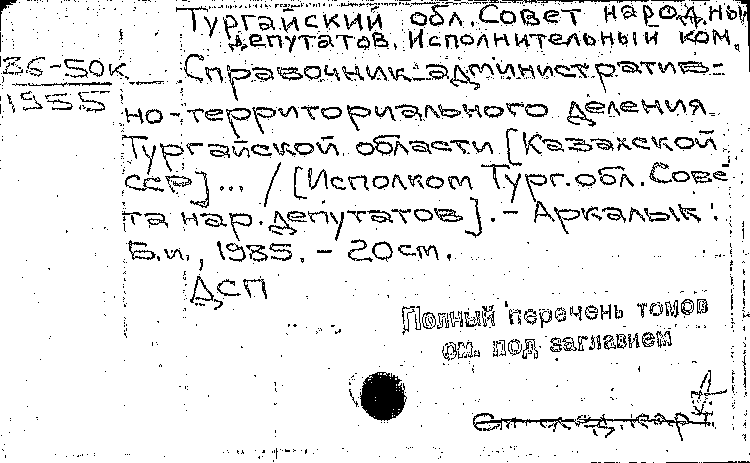 Тургайский обл. Совет народ.ных
депутатов. Исполнительный ком.
36-50к
1955
Справочник административ-
но-территориального деления
Тургайской области [Казахской
ССР]... / [Исполком Тург. обл. Сове-
та нар. депутатов]. – Аркалык :
Б.и., 1985. – 20 см.
ДСП
Полный перечень томов
см. под заглавием
См. след. карт.